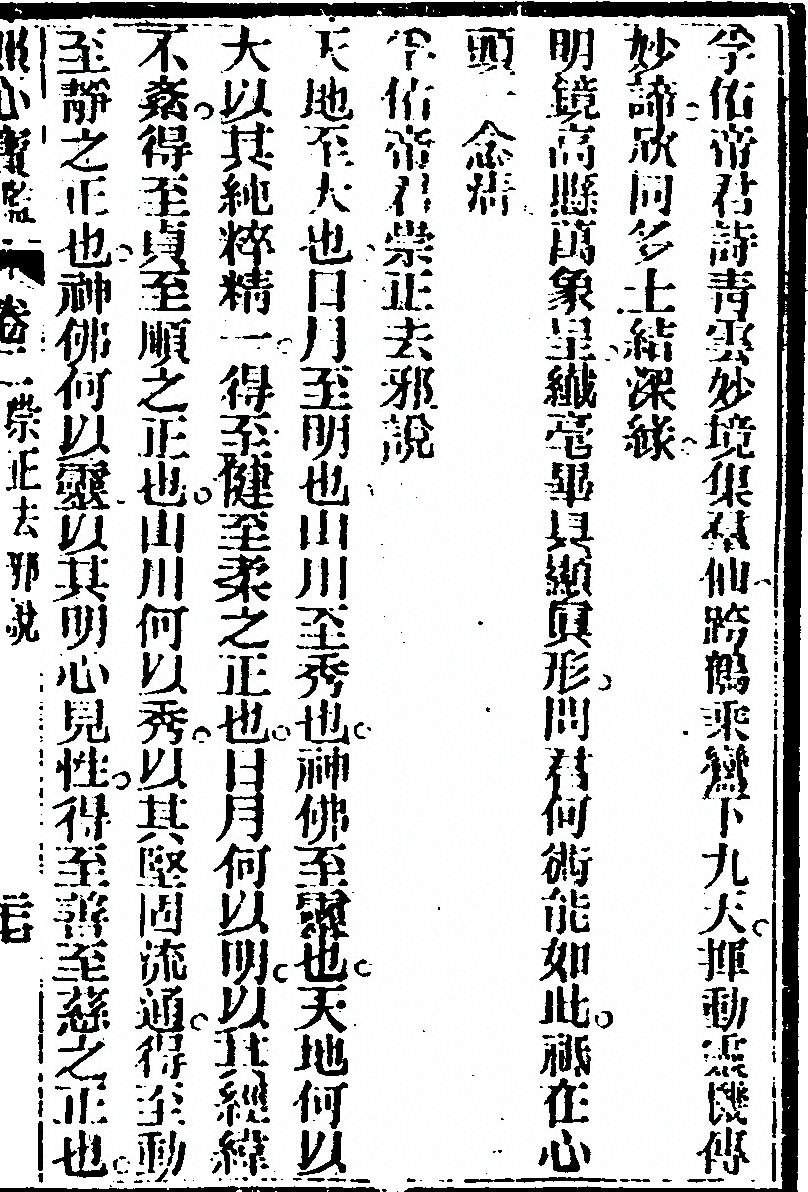 孚佑帝君詩青雲妙境集羣仙跨鶴乘鸞下九天揮動靈機傳
妙諦欣同多士結深緣
明鏡高懸萬象呈纖毫畢具顯眞形問君何術能如此祗在心
頭一念清
孚佑帝君崇正去邪說
天地至大也日月至明也山川至秀也神佛至靈也天地何以
大以其純粹精一得至健至柔之正也日月何以明以其經緯
不紊得至貞至順之正也山川何以秀以其堅固流通得至動
至靜之正也神佛何以靈以其明心見性得至善至慈之正也
心寶 卷二 崇正去邪說